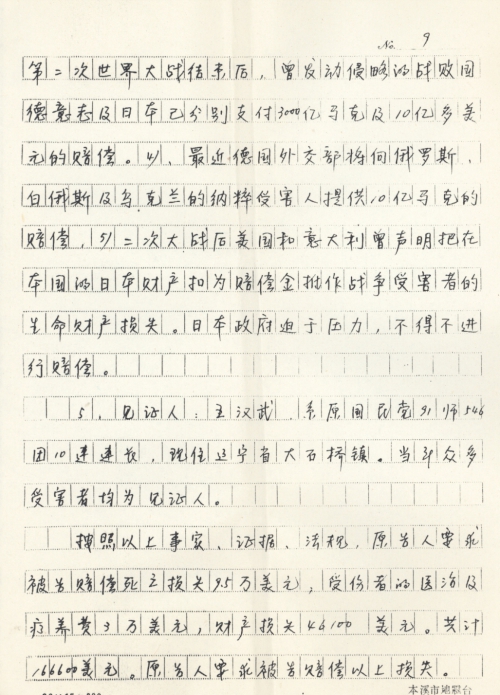 No. 9
第二次世界大战结束后，曾发动侵略的战败国
德意志及日本已分别支付3000亿马克及10亿多美
元的赔偿。4)、最近德国外交部将向俄罗斯、
白俄斯及乌克兰的纳粹受害人提供10亿马克的
赔偿，5)二次大战后美国和意大利曾声明把在
本国的日本财产扣为赔偿金拟作战争受害者的
生命财产损失。日本政府迫于压力，不得不进
行赔偿。
5、见证人：王汉武、系原国民党91师546
团10连连长，现住辽宁省大石桥镇。当年众多
受害者均为见证人。
按照以上事实、证据、法规，原告人要求
被告赔偿死亡损失9.5万美元，受伤者的医治及
疗养费3万美元，财产损失46100美元。共计
166600美元。原告人要求被告赔偿以上损失。
本溪市